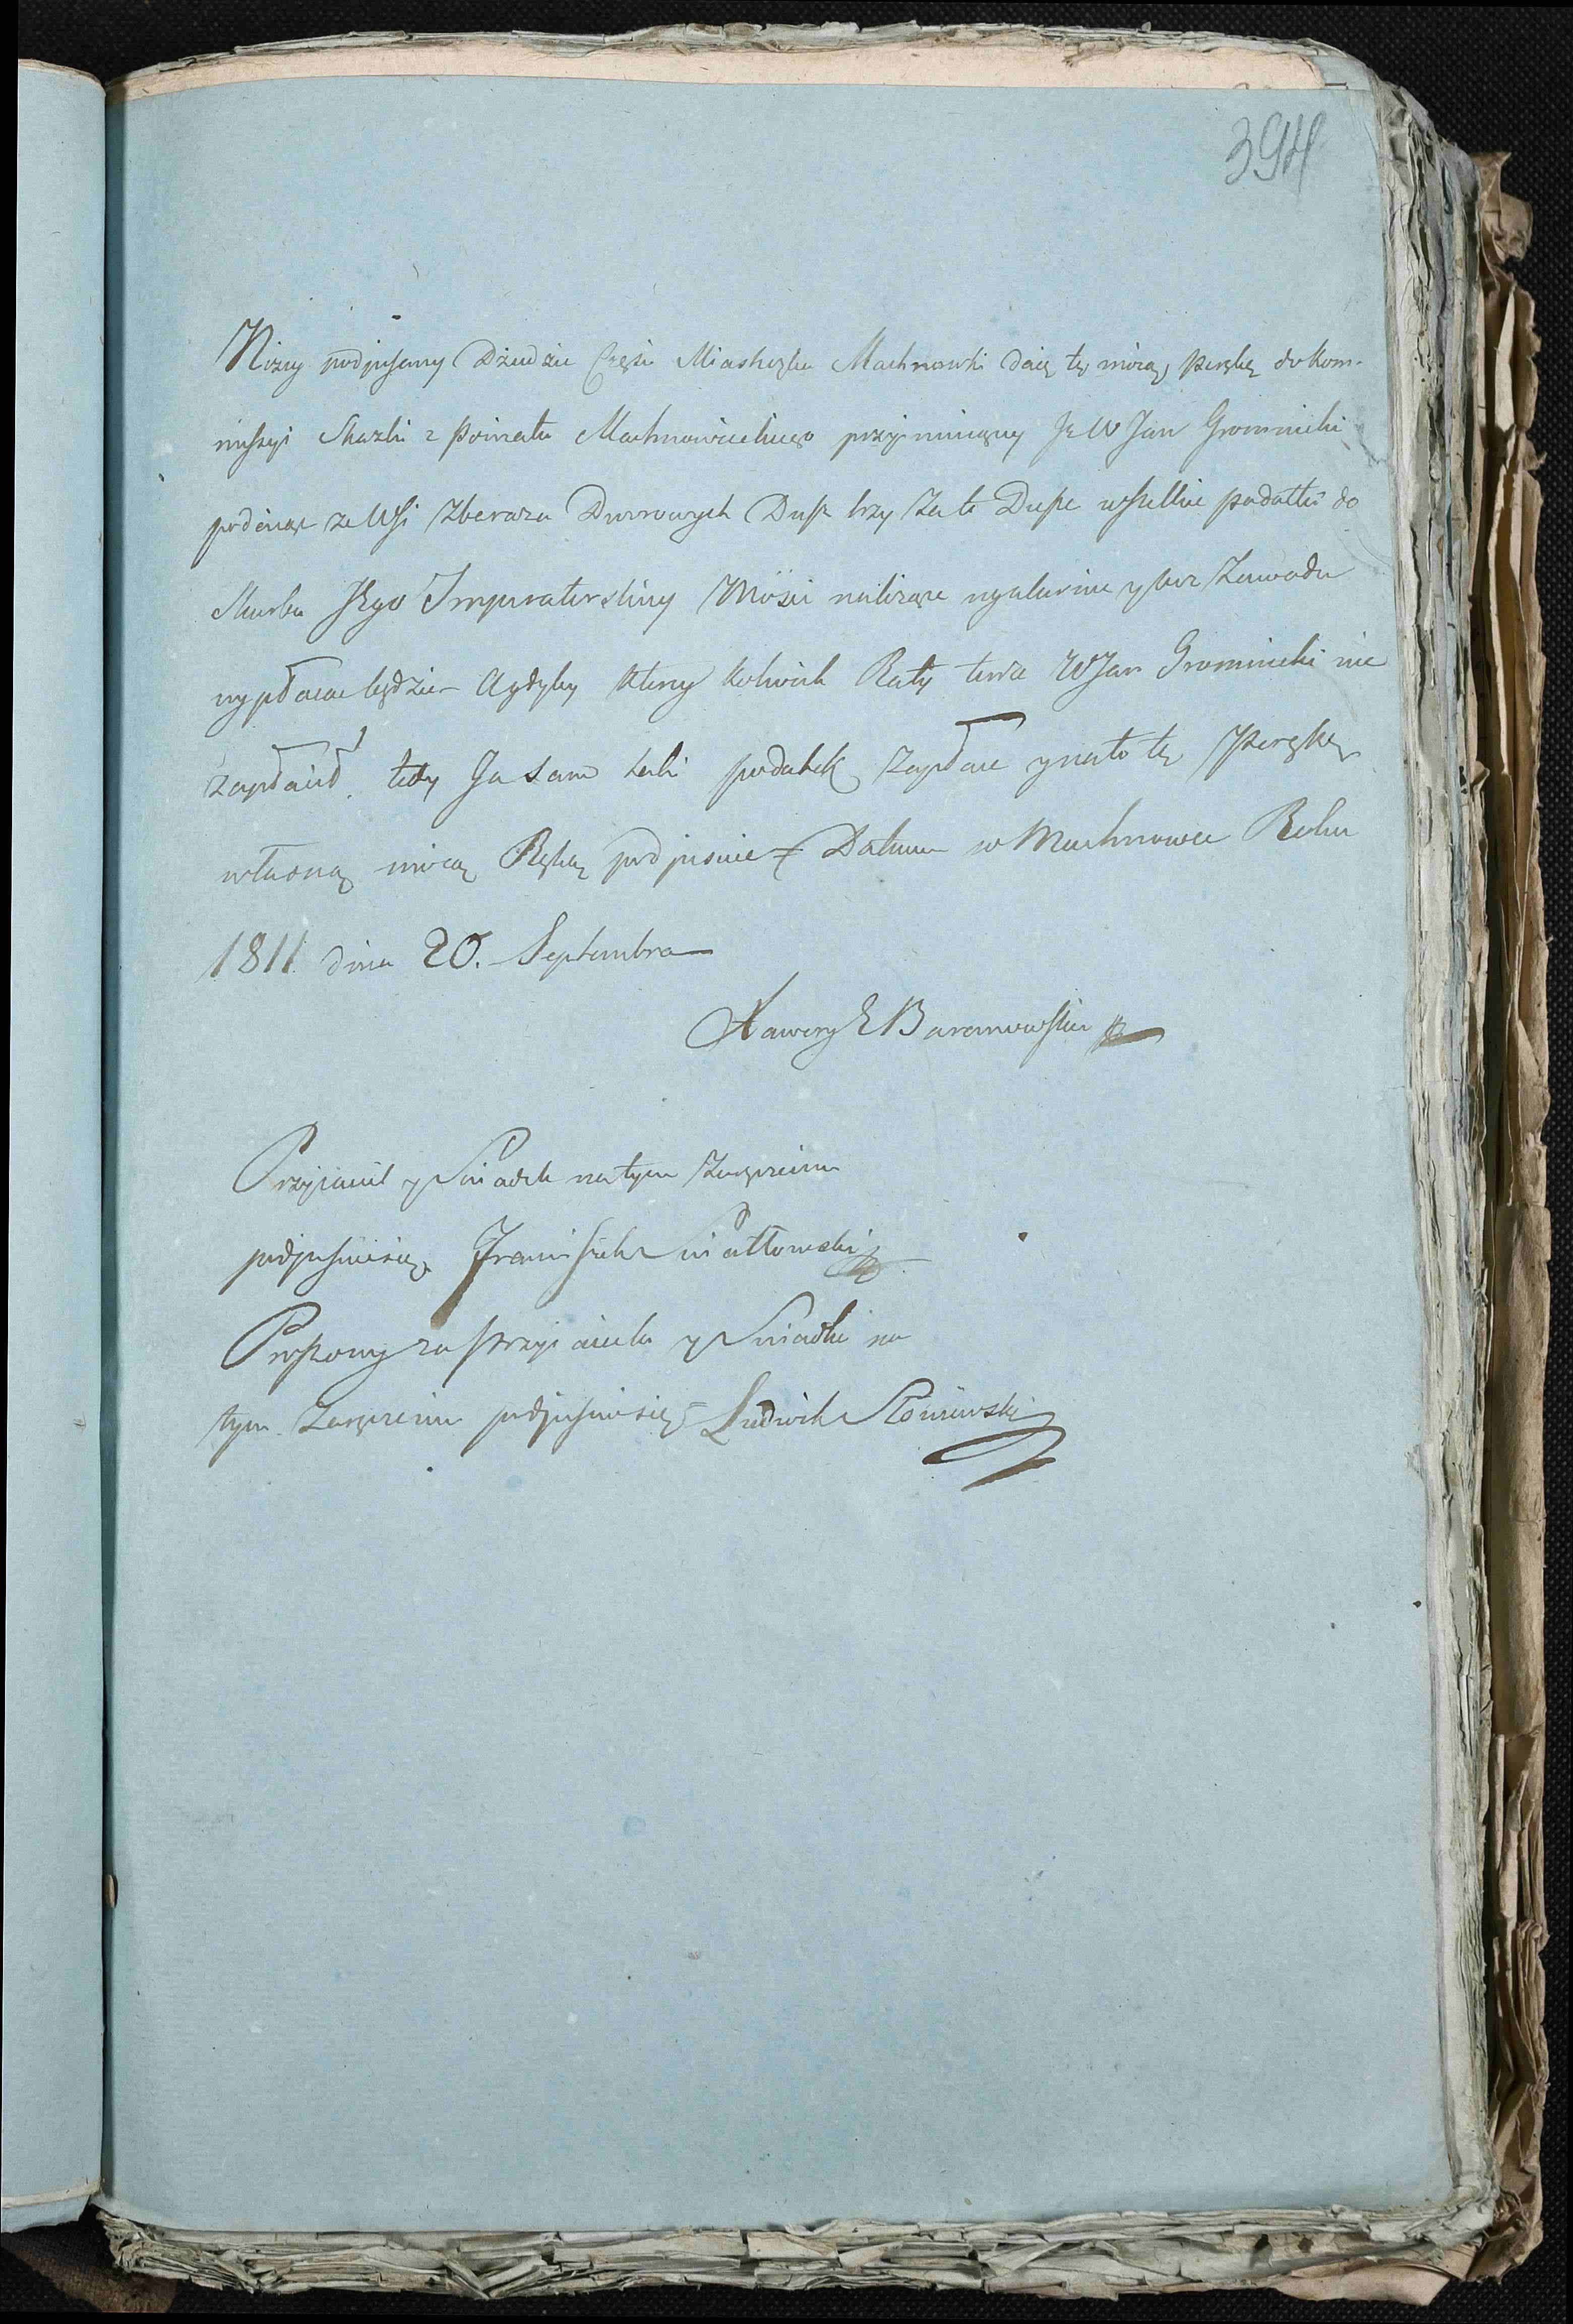 394
Niżey podpisany Dziedzic Częsci Miasteczka Machnowki daię tę moią Porękę do kom-
missyi Skazki z Powiatu Machnowieckiego przyimuiącey że W Jan Gromnicki
podaiąc ze Wsi Zberaza Dworowych Dusz trzy za te Dusze wszelkie podatki do
Skarbu Jego Imperatorskiey Mości należące regularnie y bez Zawodu
wypłacac będzie a gdyby ktorey kolwiek Raty tenże W Jan Gromnicki nie
zapłacił, tedy Ja sam taki podatek zapłace y na to tę Porękę
własną moią Ręką podpisuie Datum w Machnowce Roku
1811 dnia 20. Septembra
Xawery Baranowski
Przyiaciel y Swiadek na tym Zaręczeniu
podpisuię się Franciszek Swiatkowski
Proszony za Przyiaciela y Swiadka na
tym Zaręczeniu podpisuię się Ludwik